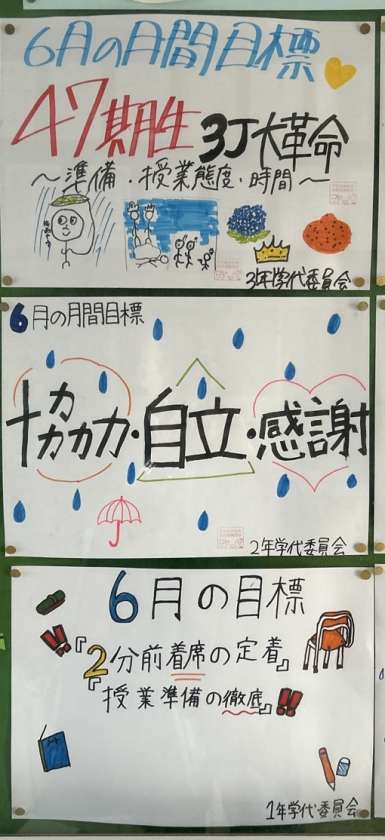 6月の月間目標
47期生 3J大革命
～準備・授業態度・時間～
3年学代委員会
6月の月間目標
協力・自立・感謝
2年学代委員会
6月の目標
『2分前着席の定着』
『授業準備の徹底』!!
!!
1年学代委員会